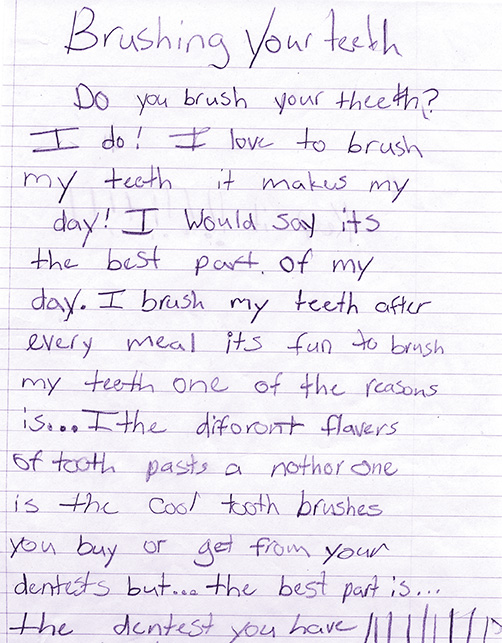 Brushing your teeth
Do you brush your theeth?
I do! I love to brush
my teeth it makes my
day! I would say its
the best part. of my
day. I brush my teeth after
every meal its fun to brush
my teeth one of the reasons
is... I the diforont flavers
of tooth pasts a nothor one
is the cool tooth brushes
you buy or get from your
dentests but... the best part is...
the dentest you have